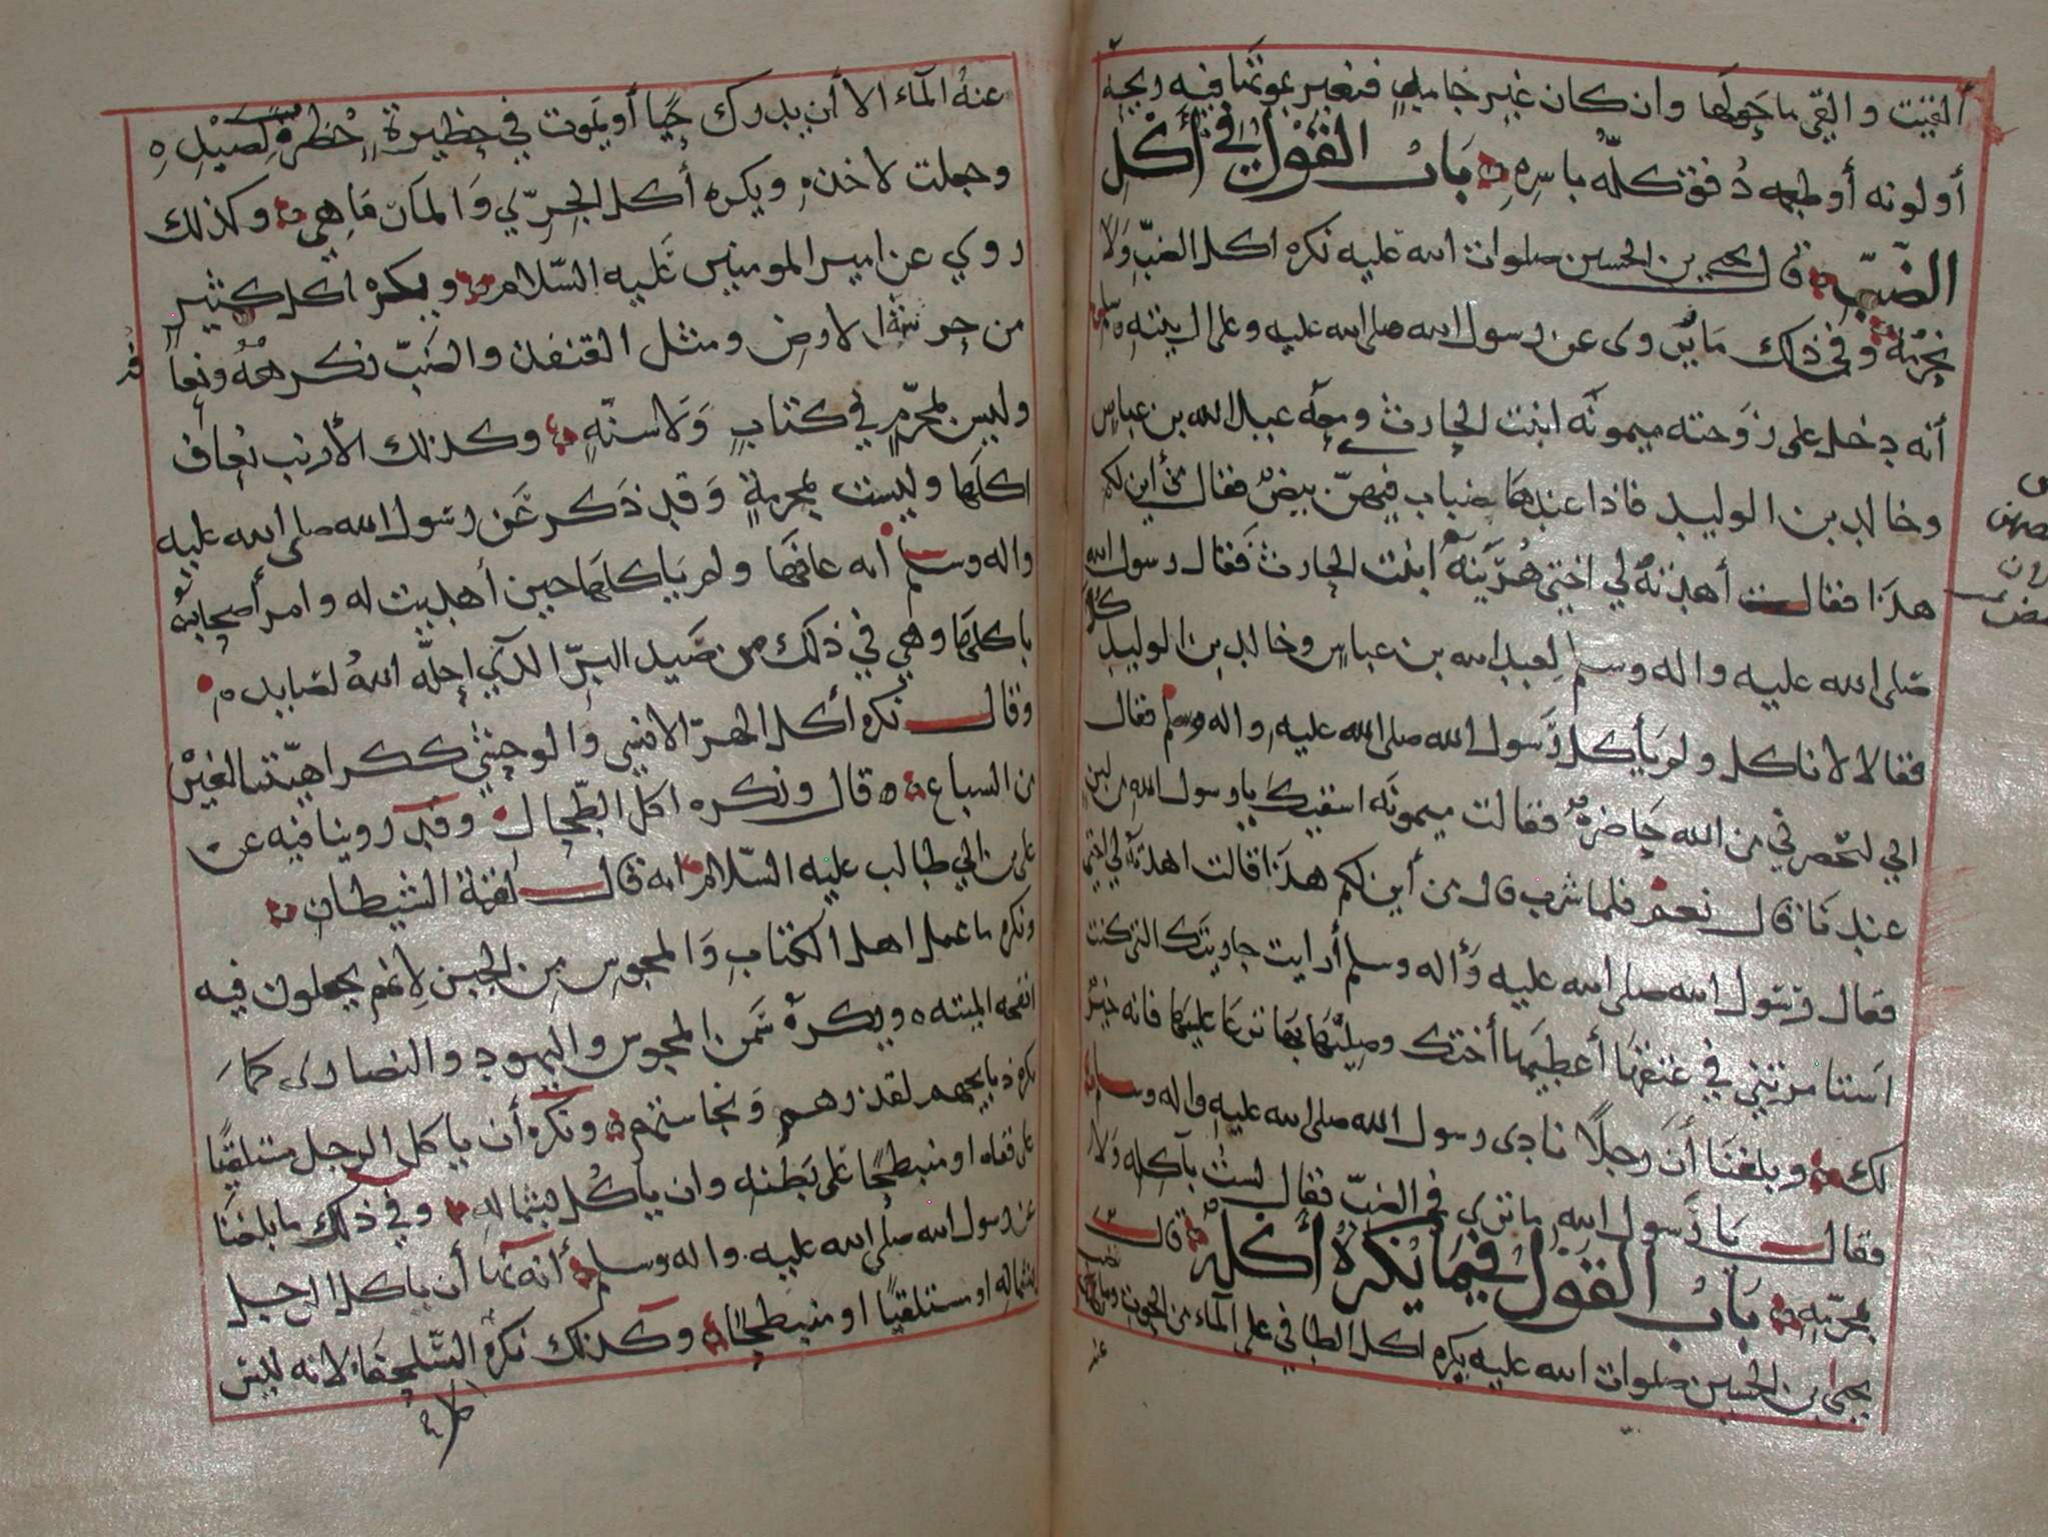 ألقيت والقي ما حولها وان كان غير جامدٍ فتغير بموتها فيه ريحه
أو لونه أو طعمه دُفق كلّه باسره باب القول في أكل
الضبّ قال يحيى بن الحسين صلوات الله عليه نكره اكل الضبّ ولا
نحرّمه وفي ذلك ما يروى عن رسول الله صلى الله عليه وعلى
أنه دخل على زوجته ميمونه ابنت الحارث ومعه عبدالله بن عباس
وخالد بن الوليد فاذا عندها ضباب فيهنّ بيض فقال من أين لكم
هذا فقالت أهدته لي اختي هزينه ابنت الحارث فقال رسول الله
صلى الله عليه واله وسلم لعبدالله بن عباس وخالد بن الوليد كلا
فقالا لا ناكل ولم يأكل رسول الله صلى الله عليه واله وسلم فقال
اني لتحضرني من الله حاضرة فقالت ميمونه اسقيك يا رسول الله من لبنٍ
عندنا قال نعم فلما شرب قال من أين لكم هذا قالت اهدته لي اختي
فقال رسول الله صلى الله عليه وأله وسلم أرايت جاريتك التي كنت
استامرتني في عتقها أعطيها أختك وصِليها بها ترعا عليها فانه خيرٌ
لك وبلغنا أن رجلاً نادى رسول الله صلى الله عليه واله وسلم
فقال يا رسول الله ما ترى في الضبّ فقال لستُ بآكله ولا
بمحرّمه باب القول فيما يكره أكله قال
يحيى بن الحسين صلوات الله عليه يكره اكل الطافي على المآء من الحوت وما
عنه المآء الا أن يدرك حيًا أو يموت في حظيرة حُظرة لصيده
وجعلت لاخذه ويكره أكل الجرّي والمارماهي وكذلك
روي عن امير المومنين عليه السّلام ويكره اكل كثير
من حرشة الارض ومثل القنفذ والضبّ نكرهه ونعا
وليس بمحرّمٍ في كتابٍ ولا سنّهٍ وكذلك الأرنب نعاف
اكلها وليست بمحرمةٍ وقد ذكر عن رسول الله صلى الله عليه
واله وسلم انه عافها ولم ياكلها حين أهديت له وامر أصحابه
باكلها وهي في ذلك من صيد البرّ الذي احلّه اللهُ لصايده
وقال نكره أكل الهرّ الانسي والوحشي ككراهيتنا لغيره
من السباع قال ونكره اكل الطّحال وقد روينا فيه عن
علي بن ابي طالب عليه السّلام انه قال لقمة الشيطان
ونكره ما عمل اهل الكتاب والمجوس من الجبن لانهم يجعلون فيه
انفحه الميته ويكره سَمن المجوس واليهود والنصارى كما
نكره ذبايحهم لقذرهم ونجاستهم ونكره أن ياكل الرجل مستلقيًا
على قفاه او منبطحًا على بَطنه وان يأكل بشماله وفي ذلك ما بلغنا
عن رسول الله صلى الله عليه واله وسلم أنه نها أن ياكل الرجل
بشماله او مستلقيًا او منبطحًا وكذلك نكره السّلحفاه لانه ليس